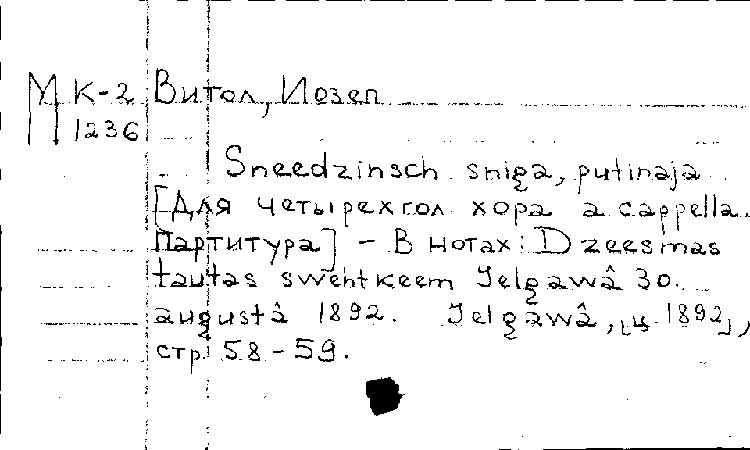 М К-2 Витол, Иозеп
1236
Sneedzinsch sniga, putinaja
[Для четырехгол. хора a cappella.
Партитура] - В нотах: Dzeesmas
tautas swehtkeem Jelgawâ 30.
augustâ 1892. Jelgawâ, [ц. 1892],
стр. 58-59.